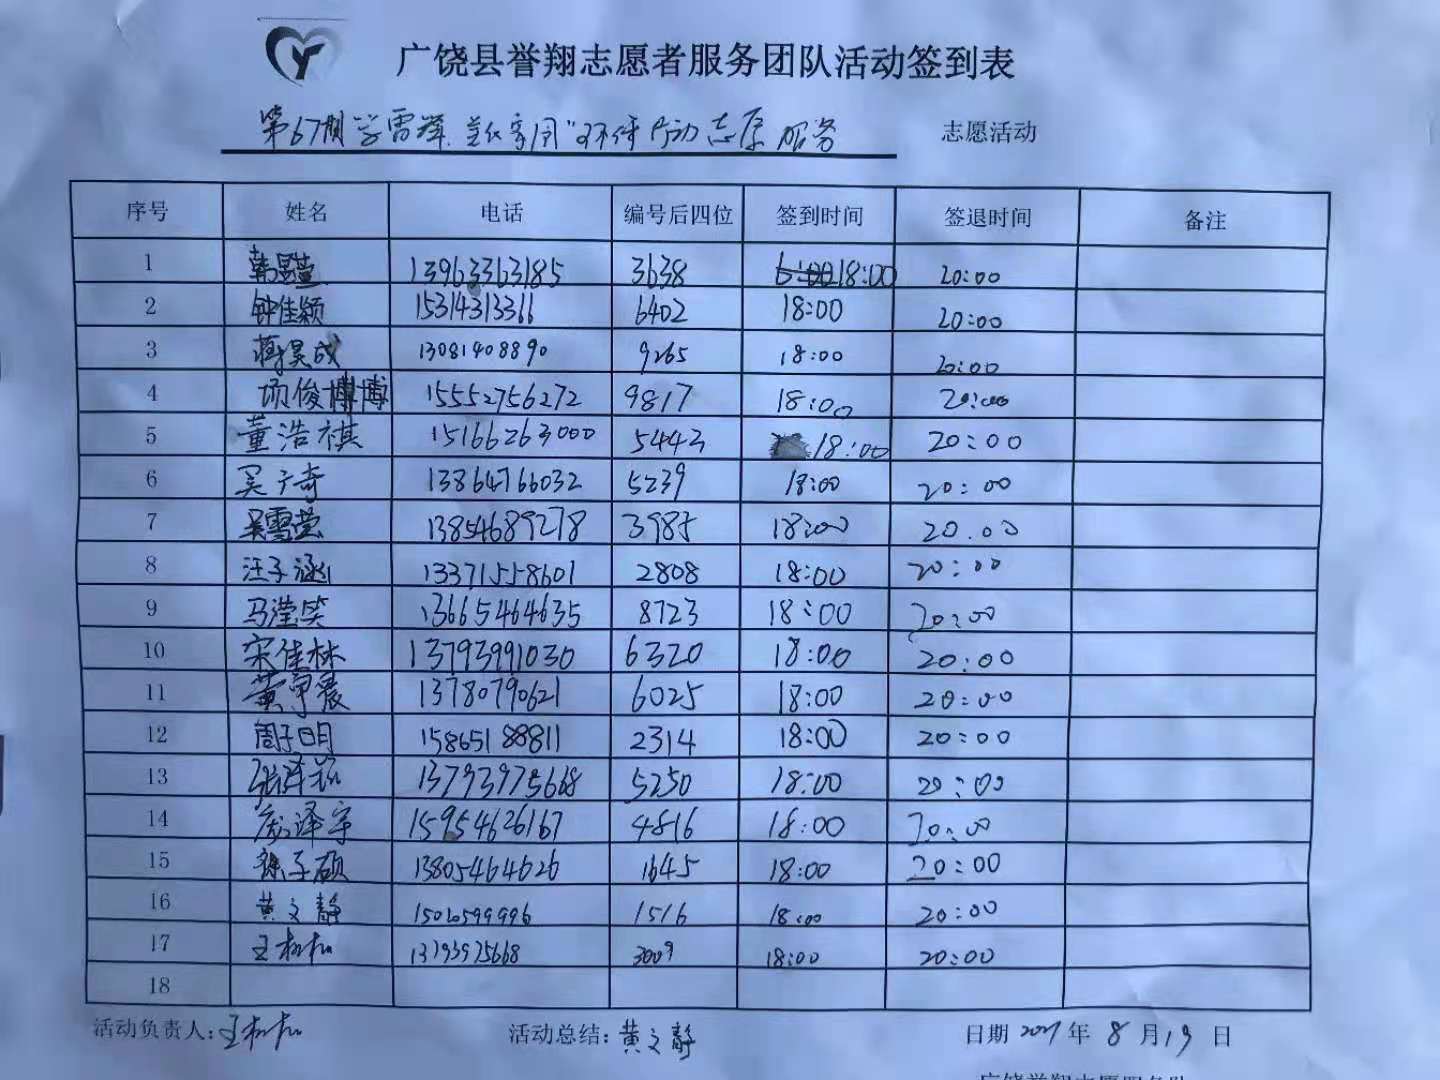 广饶县誉翔志愿者服务团队活动签到表
第67期学雷锋 美化家园"环保行动志愿服务 志愿活动
序号 姓名 电话 编号后四位 签到时间 签退时间 备注
1 韩昱萱 13963363185 3638 6:00 18:00 20:00
2 钟佳颖 15314313311 6402 18:00 20:00
3 蒋昊成 13081408890 9265 18:00 20:00
4 项俊博 15552756272 9817 18:00 20:00
5 董浩祺 15166263000 5443 18:00 20:00
6 吴广奇 13864766032 5239 18:00 20:00
7 吴雪莹 13854689278 3985 18:00 20:00
8 汪子涵 13371558601 2808 18:00 20:00
9 马滢笑 13665464635 8723 18:00 20:00
10 宋佳林 13793991030 6320 18:00 20:00
11 黄 晨 13780790621 6025 18:00 20:00
12 周子明 15865188811 2314 18:00 20:00
13 张泽 13793975668 5250 18:00 20:00
14 泽宇 15954626167 4816 18:00 20:00
15 子硕 13805464626 1645 18:00 20:00
16 黄文静 15020599996 1516 18:00 20:00
17 王 13793975668 3009 18:00 20:00
18
活动负责人:王 活动总结:黄文静 日期 2021年8月19日
广饶誉翔志愿服务队